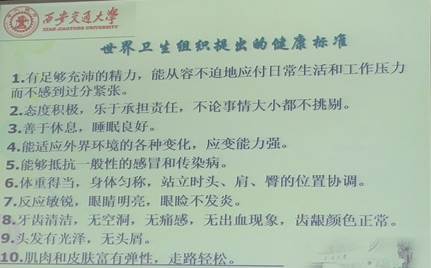 西安交通大学
XI'AN JIAOTONG UNIVERSITY
世界卫生组织提出的健康标准
1.有足够充沛的精力，能从容不迫地应付日常生活和工作压力
而不感到过分紧张。
2.态度积极，乐于承担责任，不论事情大小都不挑剔。
3.善于休息，睡眠良好。
4.能适应外界环境的各种变化，应变能力强。
5.能够抵抗一般性的感冒和传染病。
6.体重得当，身体匀称，站立时头、肩、臀的位置协调。
7.反应敏锐，眼睛明亮，眼睑不发炎。
8.牙齿清洁，无空洞，无痛感，无出血现象，齿龈颜色正常。
9.头发有光泽，无头屑。
10.肌肉和皮肤富有弹性，走路轻松。